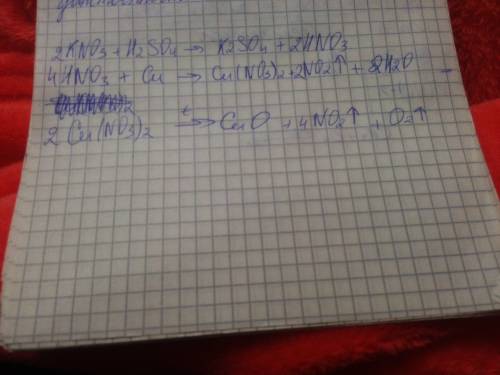 2KNO3 + H2SO4 → K2SO4 + 2HNO3
4HNO3 + Cu → Cu(NO3)2 + 2NO2↑ + 2H2O
2 Cu(NO3)2 t→ CuO + 4NO2↑ + O2↑